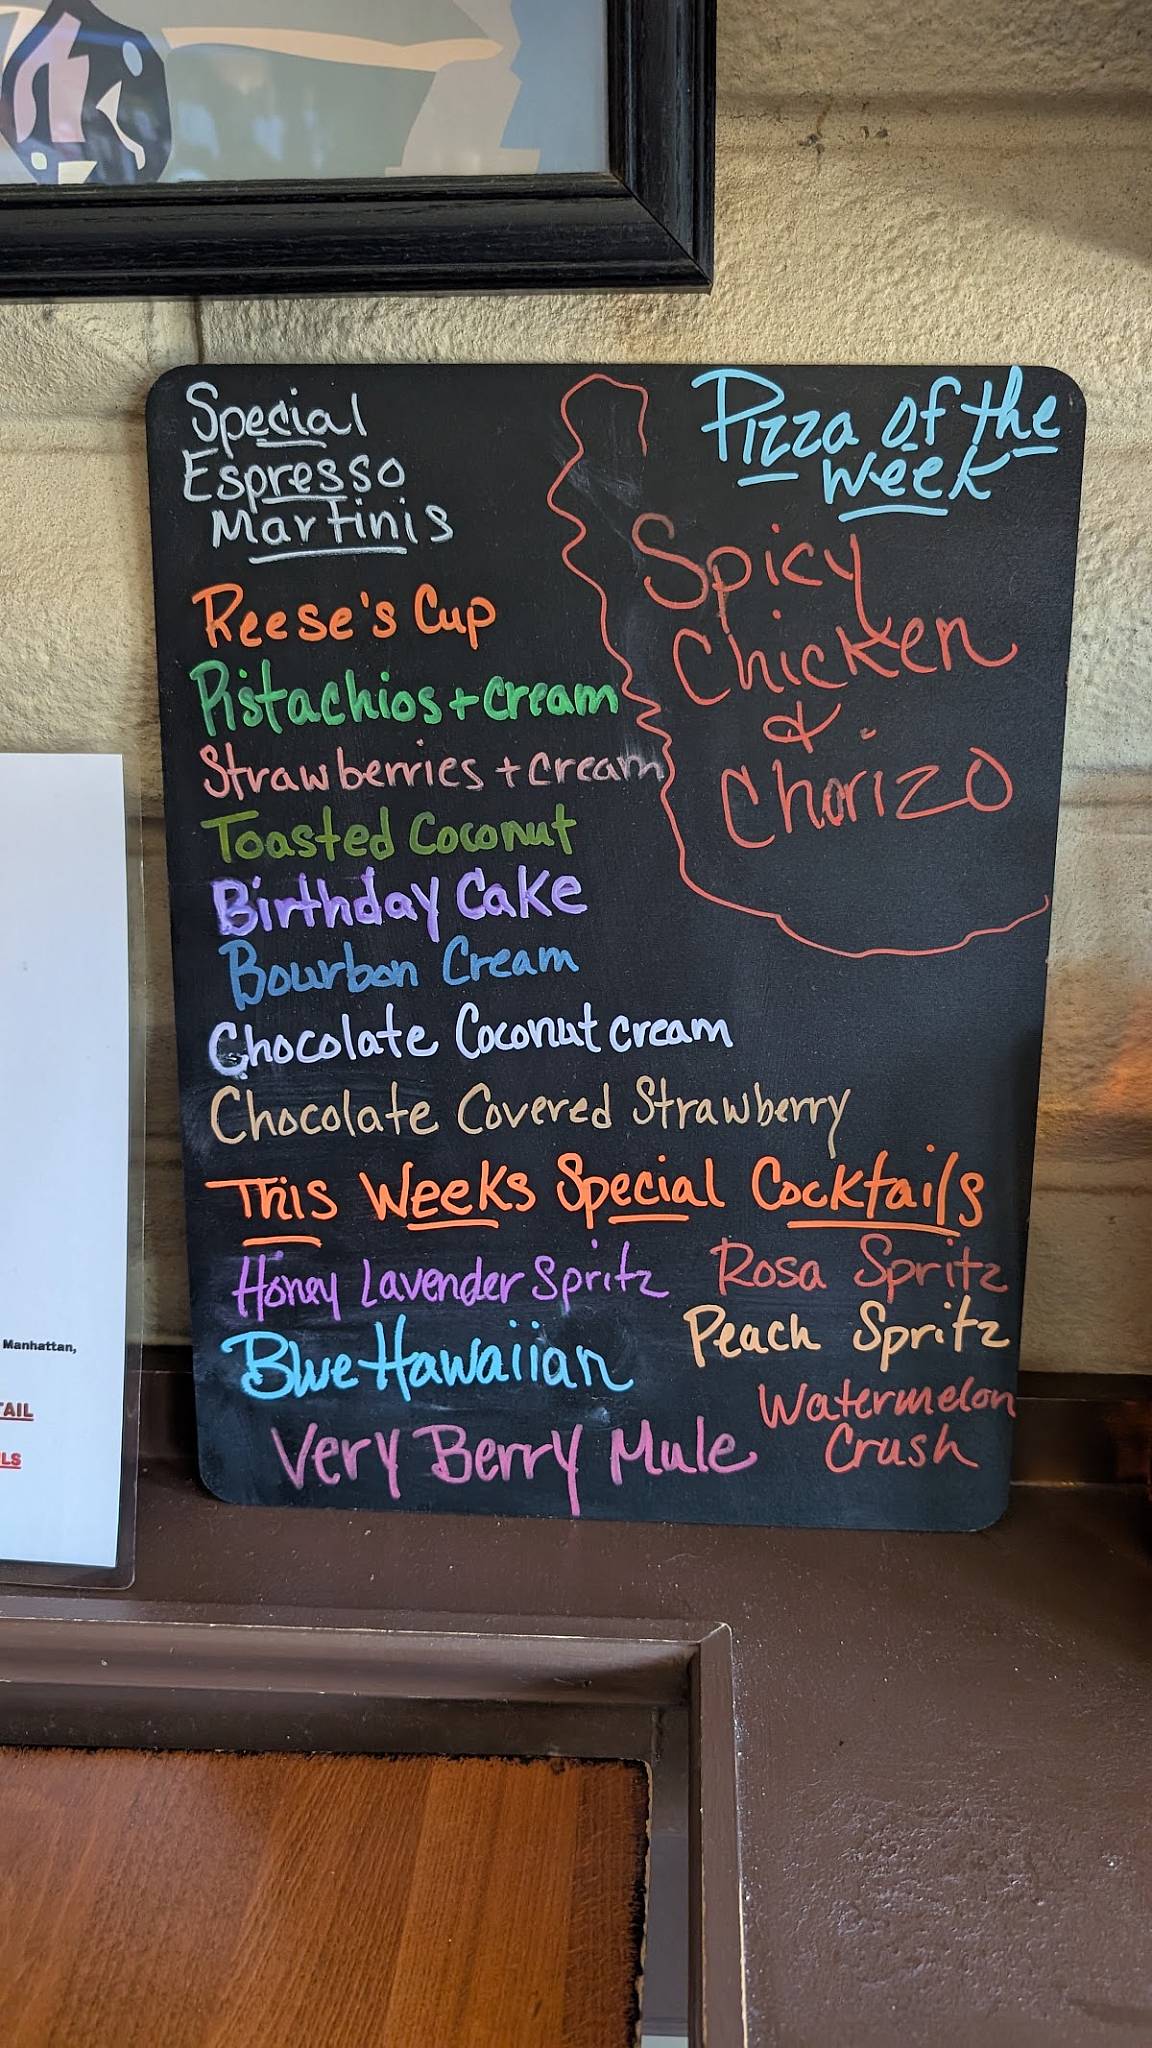 Special
Espresso
Martinis
Reese's Cup
Pistachios + cream
Strawberries + cream
Toasted Coconut
Birthday Cake
Bourbon Cream
Chocolate Coconut cream
Chocolate Covered Strawberry
Pizza of the
week
Spicy
Chicken
&
Chorizo
This Weeks Special Cocktails
Honey Lavender Spritz
Blue Hawaiian
Very Berry Mule
Rosa Spritz
Peach Spritz
Watermelon
Crush
Manhattan,
TAIL
LS